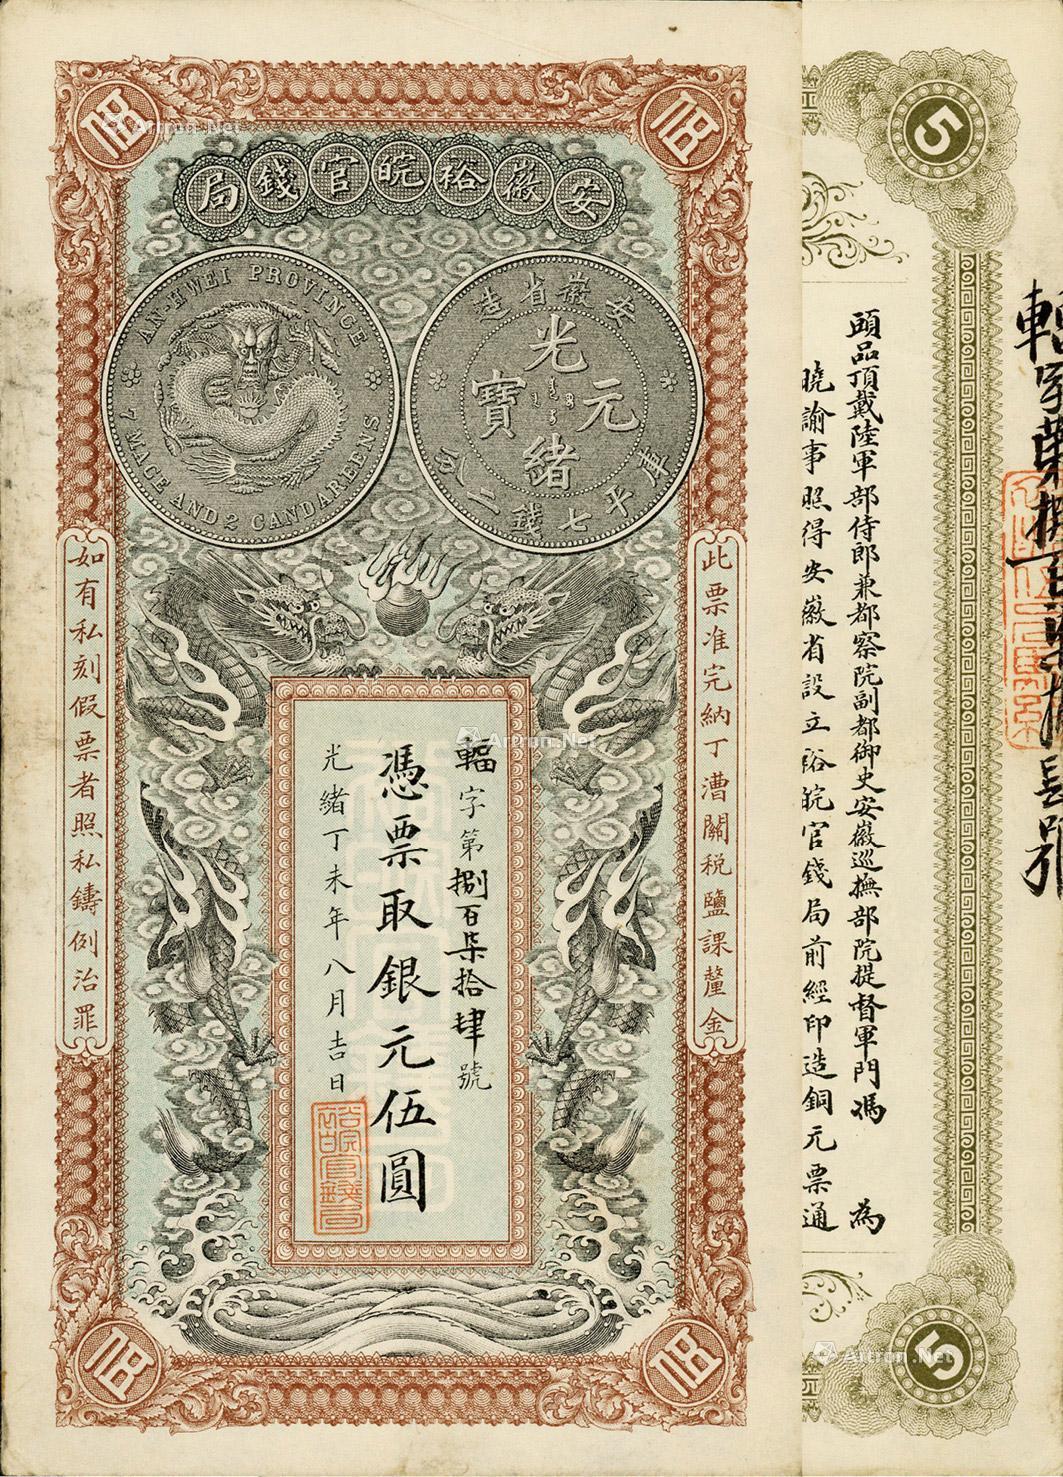 伍
伍
安徽裕皖官錢局
AN-HWEI PROVINCE
7 MACE AND 2 CANDAREENS
安徽省造
光緒元寶
庫平七錢二分
此票准完納丁漕關稅鹽課釐金
如有私刻假票者照私鑄例治罪
輻字第捌百柒拾肆號
憑票取銀元伍圓
光緒丁未年八月吉日
裕皖官錢局
伍
伍
5
頭品頂戴陸軍部侍郎兼都察院副都御史安徽巡撫部院提督軍門馮 為
曉諭事照得安徽省設立裕皖官錢局前經印造銅元票通
5
Artron.Net
Artron.Net
Artron.Net